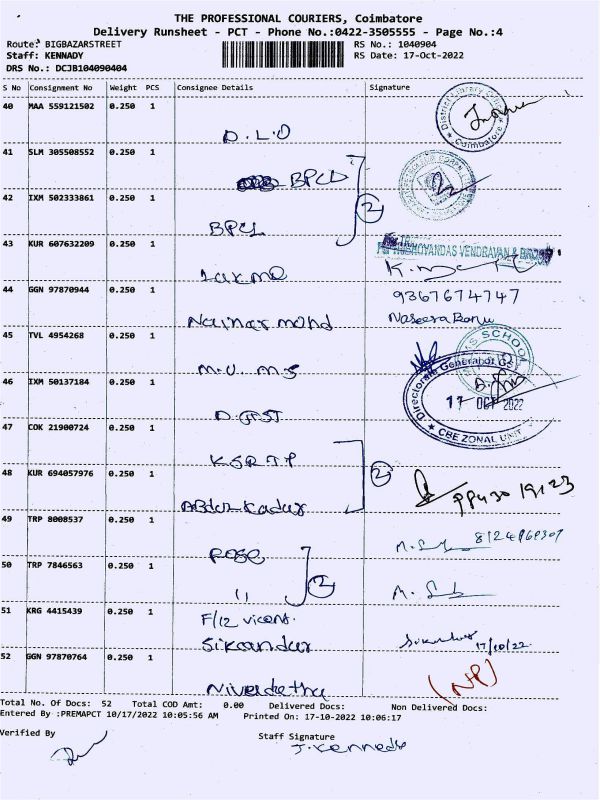 THE PROFESSIONAL COURIERS, Coimbatore
Delivery Runsheet - PCT - Phone No.:0422-3505555 - Page No.:4
Route: BIGBAZARSTREET
RS No.: 1040904
Staff: KENNADY
RS Date: 17-Oct-2022
DRS No.: DCJB104090404
S No Consignment No Weight PCS Consignee Details Signature
40 MAA 559121502 0.250 1
D.L.O
District Library Coimbatore
41 SLM 305508552 0.250 1
BPCL
42 IXM 502333861 0.250 1
2
BPCL
43 KUR 607632209 0.250 1
VENDRAVAN &
Laxme
44 GGN 97870944 0.250 1
9367674747
Nainar mohd
Naseera Banu
45 TVL 4954268 0.250 1
SCHOOL
M.U.M.S
46 IXM 50137184 0.250 1
Directorate General of
17 OCT 2022
D.GST
CBE ZONAL UNIT
47 COK 21900724 0.250 1
48 KUR 694057976 0.250 1
2
Abdul Kadur
49 TRP 8008537 0.250 1
Rose
50 TRP 7846563 0.250 1
2
11
51 KRG 4415439 0.250 1
F/12
Sikandar
17/10/22
52 GGN 97870764 0.250 1
(NP)
Total No. Of Docs: 52 Total COD Amt: 0.00 Delivered Docs: Non Delivered Docs:
Entered By :PREMAPCT 10/17/2022 10:05:56 AM Printed On: 17-10-2022 10:06:17
Verified By
Staff Signature
J. Kennedy